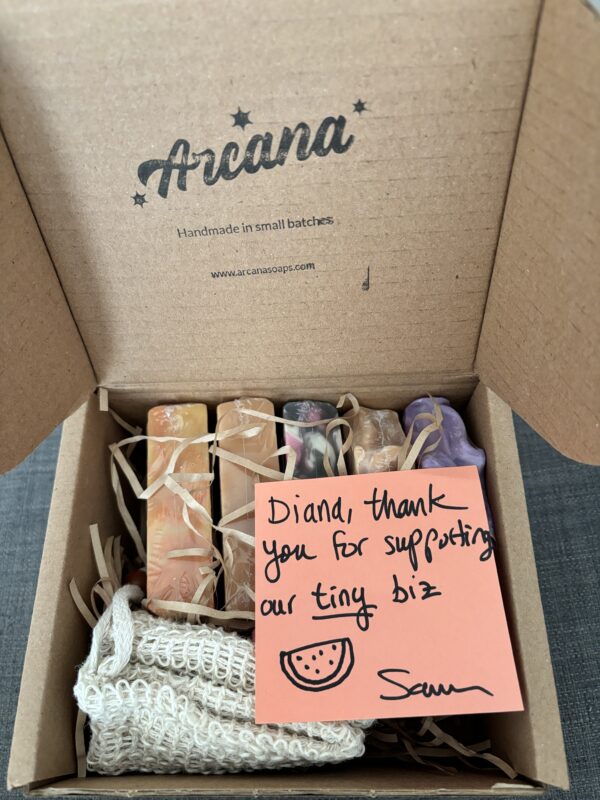 Arcana
Handmade in small batches
www.arcanasoaps.com
Diana, thank
you for supporting
our tiny biz
Sam